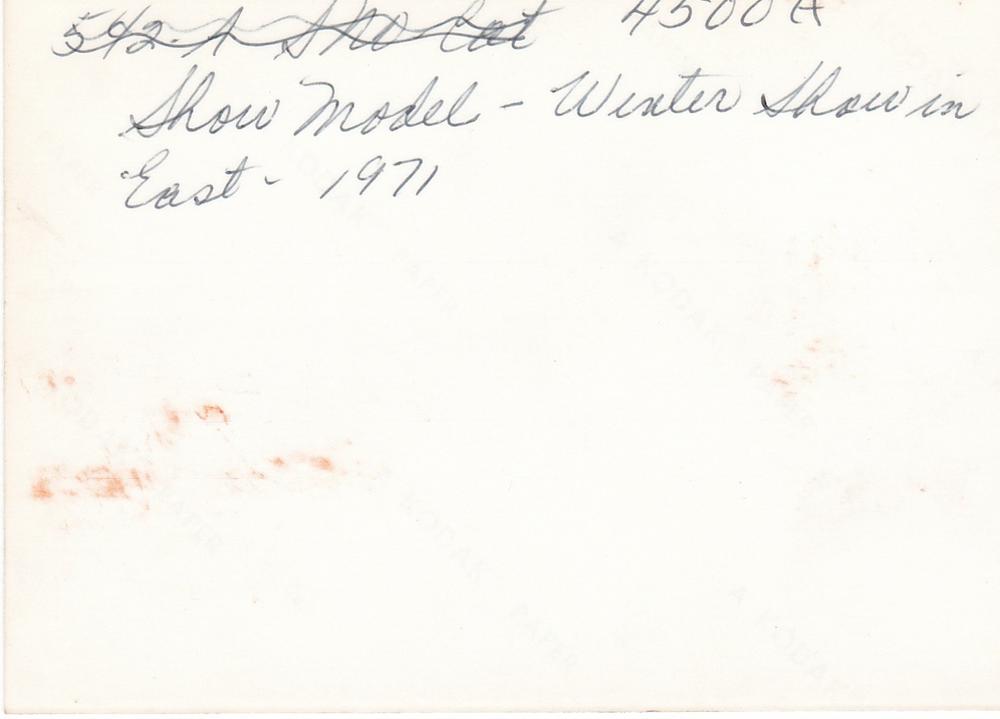 542-A Sno Cat 4500 A
Show Model - Winter Show in
East - 1971
A KODAK PAPER
A KODAK
PAPER
KODAK
PAPER
A KODAK
PAPER
A KODAK